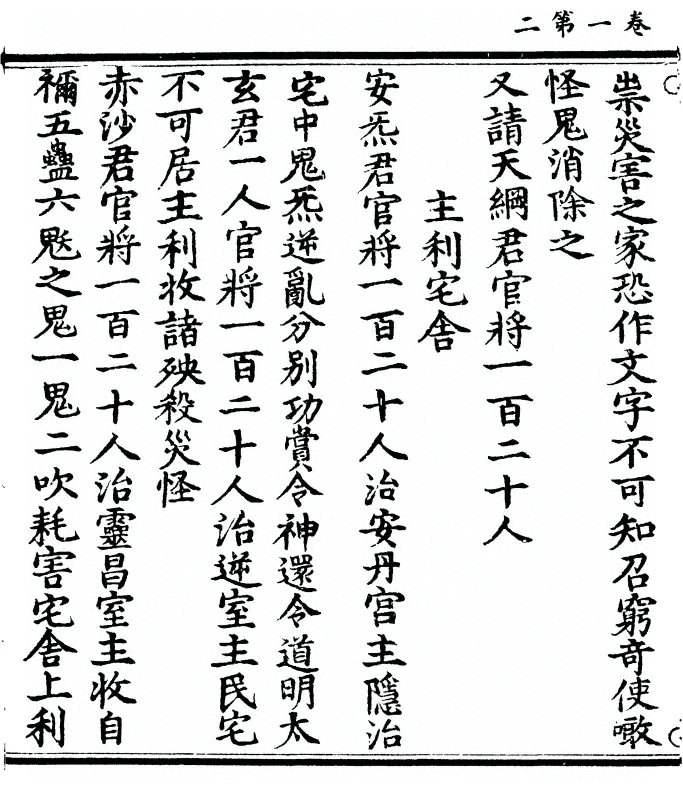 卷一第二
祟災害之家恐作文字不可知召窮奇使噉
怪鬼消除之
又請天綱君官將一百二十人
主利宅舍
安炁君官將一百二十人治安丹宫主隱治
宅中鬼炁逆亂分別功賞令神還令道明太
玄君一人官將一百二十人治逆室主民宅
不可居主利收諸殃殺災怪
赤沙君官將一百二十人治靈昌室主收自
禰五蠱六魅之鬼一鬼二吹耗害宅舍上利